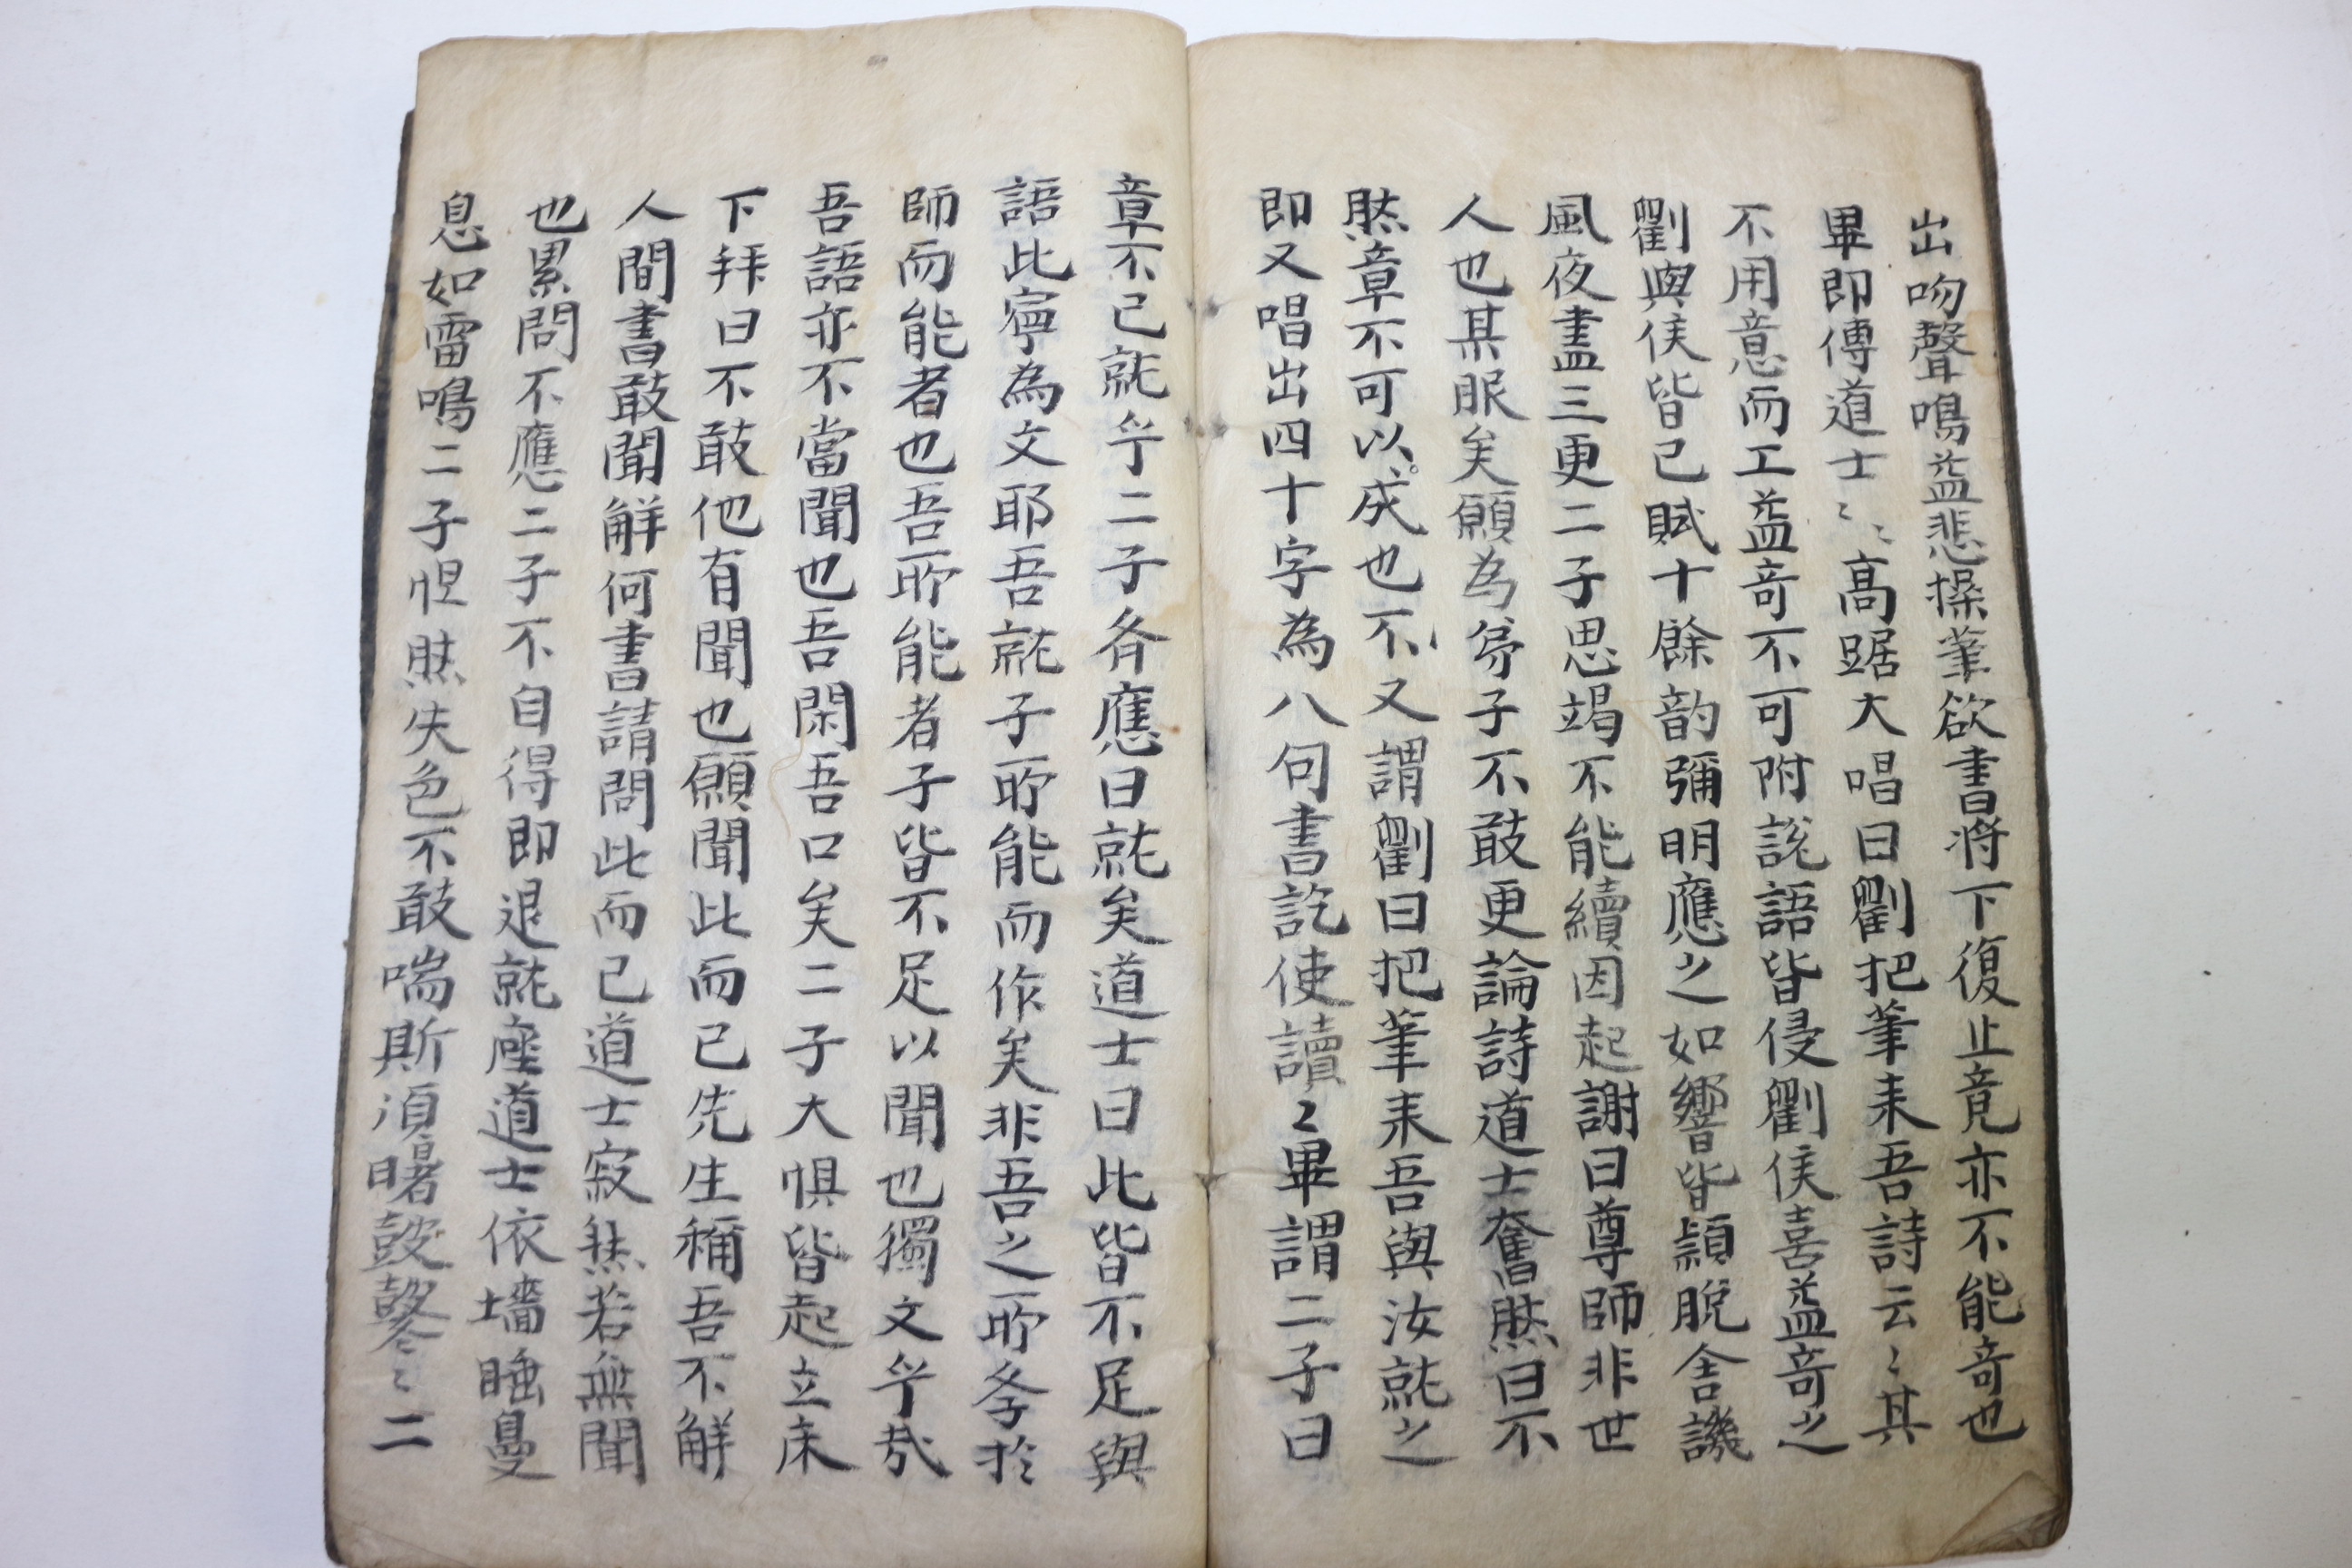 出吻聲鳴益悲操筆欲書將下復止竟亦不能奇也
畢即傳道士〻〻高踞大唱曰劉把筆來吾詩云〻其
不用意而工益奇不可附說語皆侵劉侯喜益奇之
劉與侯皆已賦十餘韵彌明應之如響皆穎脫含譏
風夜盡三更二子思竭不能續因起謝曰尊師非世
人也某服矣願為弟子不敢更論詩道士奮然曰不
然章不可以成也不又謂劉曰把筆來吾與汝就之
即又唱出四十字為八句書訖使讀〻畢謂二子曰
章不已就乎二子齐應曰就矣道士曰此皆不足與
語此寧為文耶吾就子所能而作矣非吾之所斈於
師而能者也吾所能者子皆不足以聞也獨文乎哉
吾語亦不當聞也吾閑吾口矣二子大惧皆起立床
下拜曰不敢他有聞也願聞此而已先生稱吾不解
人間書敢聞解何書請問此而已道士寂然若無聞
也累問不應二子不自得即退就座道士依墻睡鼻
息如雷鳴二子怛然失色不敢喘斯須曙鼓鼕〻二